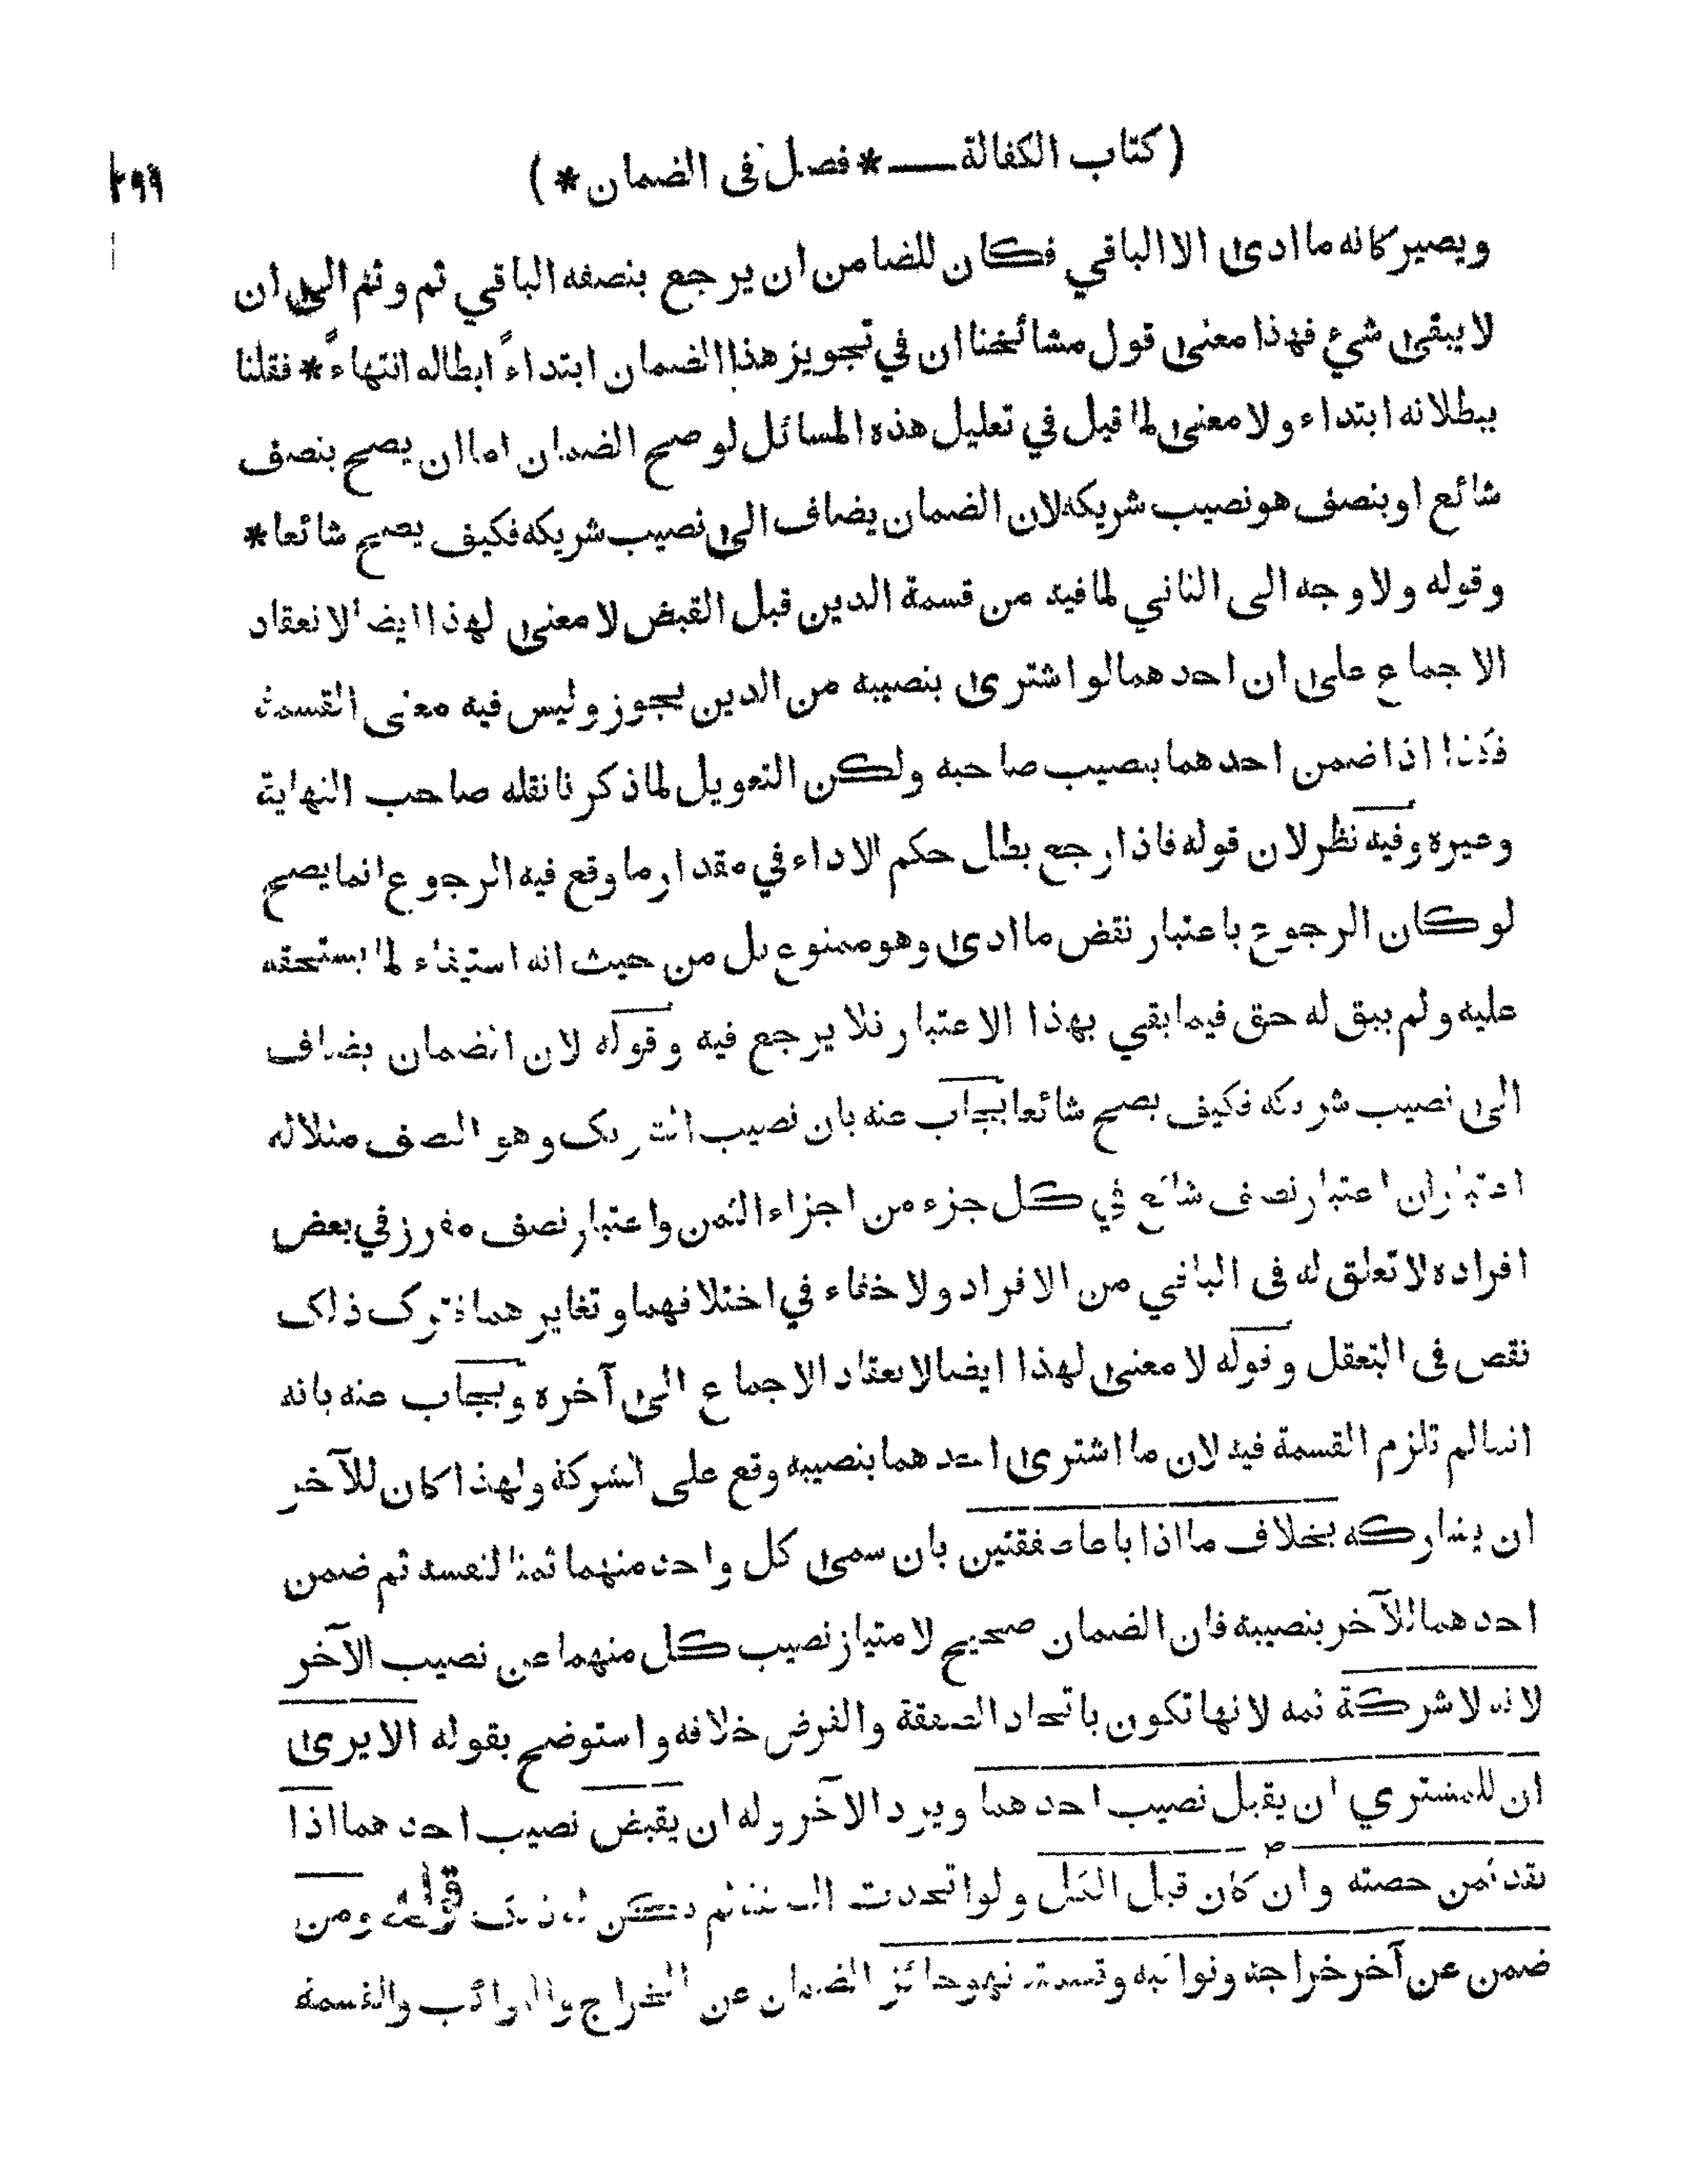 ( كتاب الكفالة — * فصل فى الضمان * )
٢٩٩
ويصير كانه ما ادى الا الباقي فكان للضامن ان يرجع بنصفه الباقي ثم وثم الى ان
لا يبقى شئ فهذا معنى قول مشائخنا ان في تجويز هذا الضمان ابتداءً ابطاله انتهاءً * فقلنا
ببطلانه ابتداء ولا معنى لما قيل في تعليل هذه المسائل لو صح الضمان اما ان يصح بنصف
شائع او بنصف هو نصيب شريكه لان الضمان يضاف الى نصيب شريكه فكيف يصح شائعا *
وقوله ولا وجه الى الثاني لما فيه من قسمة الدين قبل القبض لا معنى لهذا ايضا لانعقاد
الاجماع على ان احدهما لو اشترى بنصيبه من الدين يجوز وليس فيه معنى القسمة
فكذا اذا ضمن احدهما بنصيب صاحبه ولكن التعويل لما ذكرنا نقله صاحب النهاية
وغيره وفيه نظر لان قوله فاذا رجع بطل حكم الاداء في مقدار ما وقع فيه الرجوع انما يصح
لو كان الرجوع باعتبار نقض ما ادى وهو ممنوع بل من حيث انه استيفاء لما يستحقه
عليه ولم يبق له حق فيما بقي بهذا الاعتبار فلا يرجع فيه وقوله لان الضمان يضاف
الى نصيب شريكه فكيف يصح شائعا يجاب عنه بان نصيب الشريك وهو النصف مثلا له
اعتباران اعتبار نصف شائع في كل جزء من اجزاء الثمن واعتبار نصف مفرز في بعض
افراده لا تعلق له فى الباقي من الافراد ولا خفاء في اختلافهما وتغايرهما فترك ذلك
نقص فى التعقل وقوله لا معنى لهذا ايضا لانعقاد الاجماع الى آخره ويجاب عنه بانه
انما لم تلزم القسمة فيه لان ما اشترى احدهما بنصيبه وقع على الشركة ولهذا كان للآخر
ان يشاركه بخلاف ما اذا باعا صفقتين بان سمى كل واحد منهما ثمنا لنفسه ثم ضمن
احدهما للآخر بنصيبه فان الضمان صحيح لامتياز نصيب كل منهما عن نصيب الآخر
لانه لا شركة ثمه لانها تكون باتحاد الصفقة والفرض خلافه واستوضح بقوله الا يرى
ان للمشتري ان يقبل نصيب احدهما ويرد الآخر وله ان يقبض نصيب احدهما اذا
نقد ثمن حصته وان كان قبل الكل ولو اتحدت الصفقة لم يكن له ذلك قوله ومن
ضمن عن آخر خراجه ونوائبه وقسمته فهو جائز الضمان عن الخراج والنوائب والقسمة